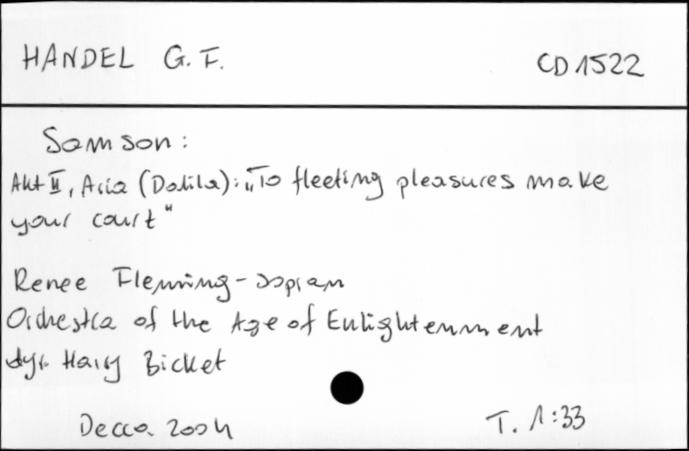 HANDEL G. F.
CD 1522
Samson:
Akt II, Aria (Dalila): „To fleeting pleasures make
your court"
Renee Fleming - sopran
Orchestra of the Age of Enlightenment
dyr. Harry Bicket
Decca 2004
T. 1:33